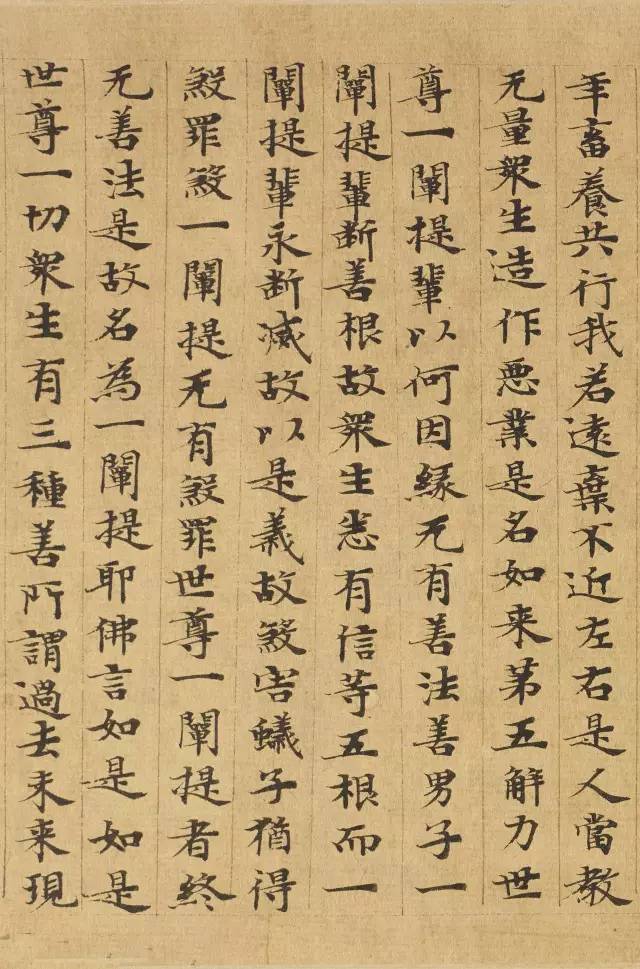 年畜養共行我若遠棄不近左右是人當教
无量衆生造作悪業是名如来第五解力世
尊一闡提輩以何因縁无有善法善男子一
闡提輩断善根故衆生悉有信等五根而一
闡提輩永断滅故以是義故煞害蟻子猶得
煞罪煞一闡提无有煞罪世尊一闡提者終
无善法是故名為一闡提耶佛言如是如是
世尊一切衆生有三種善所謂過去未来現